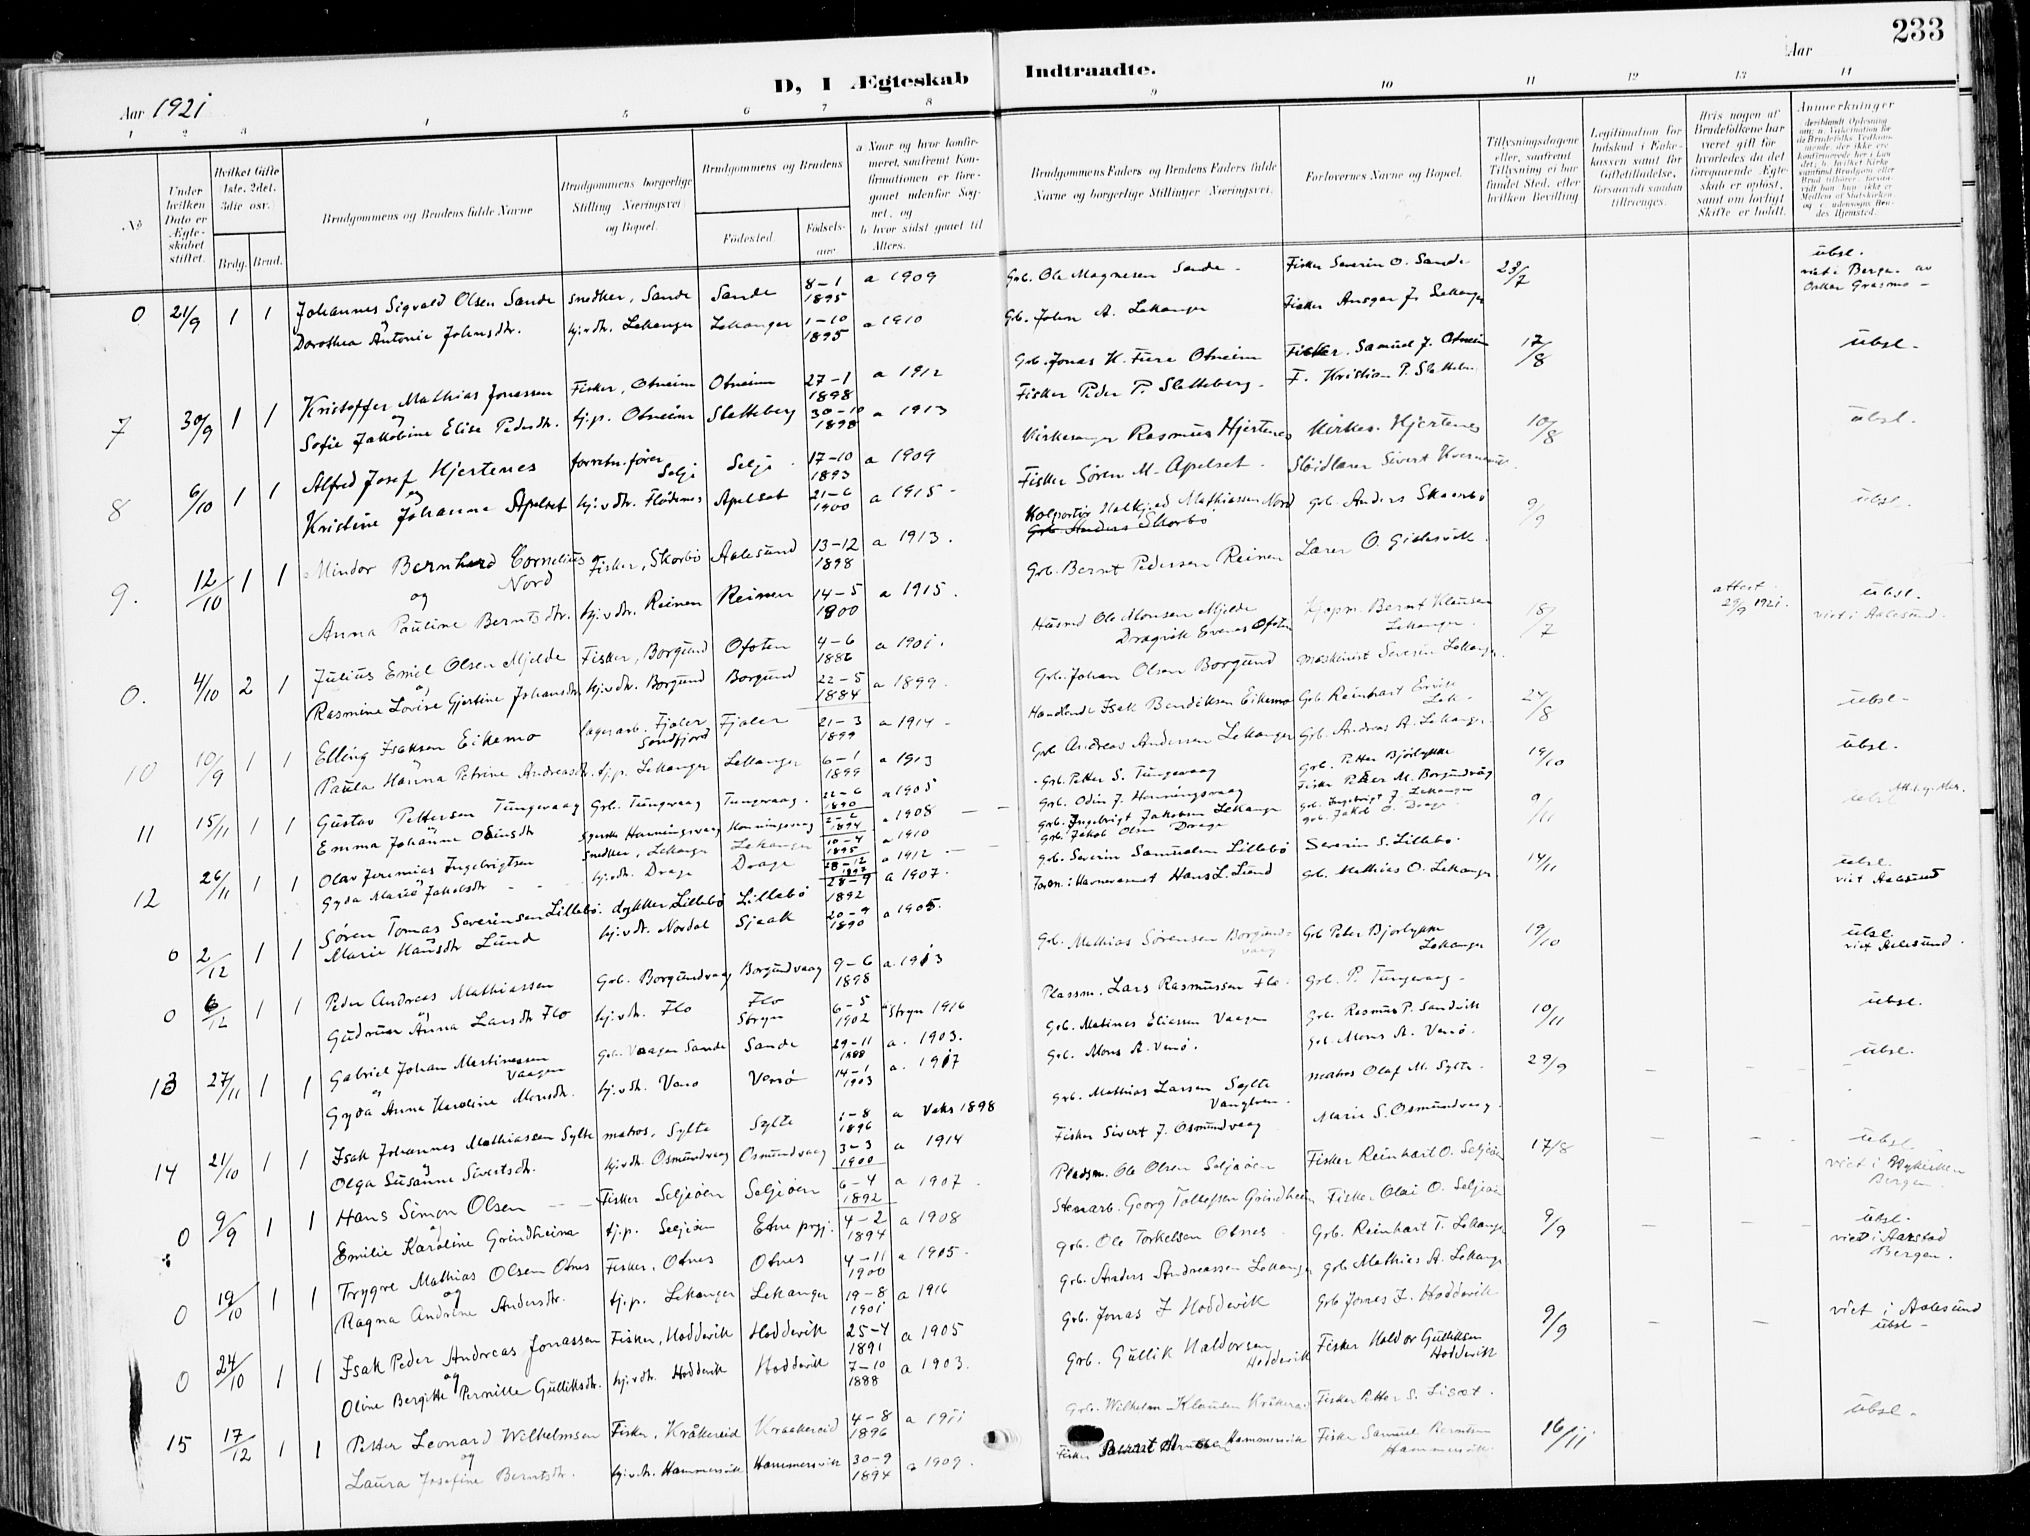 233
Aar 1921
D, I Ægteskab Indtraadte.
Aar
1 2 3 4 5 6 7 8 9 10 11 12 13 14
No
Under hvilken Dato er Ægteskabet stiftet.
Hvilket Gifte 1ste, 2det, 3die osv.
Brdg. Brud.
Brudgommens og Brudens fulde Navne
Brudgommens borgerlige Stilling Næringsvei og Bopæl.
Brudgommens og Brudens
Fødested.
Fødselsaar
a Naar og hvor konfirmeret, saafremt Konfirmationen er foregaaet udenfor Sognet, og
b hvor sidst gaaet til Alters.
Brudgommens Faders og Brudens Faders fulde Navne og borgerlige Stillinger Næringsvei.
Forlovernes Navne og Bopæl.
Tillysningsdagene eller, saafremt Tillysning ei har fundet Sted, efter hvilken Bevilling
Legitimation for Indskud i Enkekassen samt for Giftetilladelse, forsaavidt saadan tiltrænges.
Hvis nogen af Brudefolkene har været gift før hvorledes da det foregaaende Ægteskab er opløst, samt om lovligt Skifte er holdt.
Anmerkninger
0 21/9 1 1 Johannes Sigvald Olsen Sande snedker, Sande Sande 8-1 1895 a 1909 Grb. Ole Magnesen Sande - Fisker Severin O. Sande 23/7 übsl. viet i Bergen av
og
Dorothea Antonie Johnsdtr. hj.v.dtr. Lekanger Lekanger 1-10 1895 a 1910 Grb. John A. Lekanger Fisker Ansgar J. Lekanger
7 30/9 1 1 Kristoffer Mathias Jonassen Fisker, Otneim Otneim 27-1 1898 a 1912 Grb. Jonas K. Fure Otneim Fisker, Samuel J. Otneim 17/8 übsl.
og
Sofie Jakobine Elise Pedersdtr. tj.p. Otneim Slatteberg 30-10 1898 a 1913 Fisker Peder P. Slatteberg. F. Kristian P.
8 6/10 1 1 Alfred Josef Hjertenes forretn.fører Selje Selje 17-10 1893 a 1909 Kirkesanger Rasmus Hjertenes Kirkes. Hjertenes 10/8 übsl.
og
Kristine Johanne Apelset hj.v.dtr. Flødenes Apelset 21-6 1900 a 1915 - Fisker Søren M. Apelset. Sløidlærer Sivert
9. 12/10 1 1 Mindor Bernhard Cornelius Nord Fisker, Skorbø Aalesund 13-12 1898 a 1913. Kolportør Mathiassen Nord Grb. Anders Skaarbø 9/9 übsl.
Grb. Anders Skorbø
og
Anna Pauline Berntsdtr. hj.v.dtr. Reinen Reinen 14-5 1900 a 1915. Grb. Bernt Pedersen Reinen Lærer O.
0. 4/10 2 1 Julius Emil Olsen Mjelde Fisker, Borgund Ofoten 4-6 1886 a 1901. Husmd Ole Monsen Mjelde Evenes Ofoten Kjøpm. Bernt Klausen Lekanger. 18/7 attest 29/9 1921. übsl. viet i Aalesund.
og
Rasmine Lovise Gjertine Johansdtr hj.v.dtr. Borgund Borgund 22-5 1884 a 1899. Grb. Johan Olsen Borgund Maskinist Severin Lekanger.
10 10/9 1 1 Elling Isaksen Eikemo lagerarb. Fjaler Søndfjord Fjaler 21-3 1899 a 1914 - Handlende Isak Bendiksen Eikemo Grb. Reinhart Lek- 24/8 übsl.
Paula Hanna Petrine Andreasdtr. tj.p. Lekanger Lekanger 6-1 1899 a 1913 Grb Andreas Andersen Lekanger Grb. Andreas A. Lekanger
11 15/11 1 1 Gustav Pettersen Tungevaag Grb. Tungevaag Tungevaag. 22-6 1890 a 1905 Grb. Petter S. Tungevaag Grb. Petter Bjørlykke 19/10 übsl.
og
Emma Johanne Odinsdtr Honningsvaag Honningsvaag 2-2 1894 a 1908 - - Grb. Odin J. Honningsvaag Fisker Peder M. Borgundvåg
12 26/11 1 1 Olav Jeremias Ingebrigtsen snedker, Lekanger Lekanger 10-4 1895 a 1910 Grb. Ingebrigt Jakobsen Lekanger Grb. Ingebrigt J. Lekanger 9/11 übsl
Gyda Marie Jakobsdtr hj.v.dtr. Drage Drage 28-12 1897 a 1912 - - Grb. Jakob Olsen Drage Grb. Jakob O. Drage
0 2/12 1 1 Søren Tomas Severinsen Lillebø. dykker, Lillebø Lillebø 28-9 1892 a 1907. Grb. Severin Samuelsen Lillebø Severin S. Lillebø. 14/11 übsl. viet Aalesund
og
Marie Hansdtr Lund hj.v.dtr. Nordal Sjaak 20-9 1890 a 1905. Form. i Havnevæsenet Hans L. Lund Grb. Mathias O. Lekanger
0 6/12 1 1 Peder Andreas Mathiassen Grb. Borgundvaag Borgundvaag 9-6 1898 a. 1913 Grb. Mathias Sørensen Borgundvaag Grb Peter Bjørlykke Lekanger 19/10 übsl. viet Aalesund.
og
Gudrun Anna Larsdtr Flo hj.v.dtr. Flo Flo Stryn 6-5 1902 a Stryn 1916 Plassm. Lars Rasmussen Flo. Grb. P. Tungevaag -
13 27/11 1 1 Gabriel Johan Martinussen Vaagen Grb. Vaagen Sande Sande 29-11 1888 a. 1903. Grb. Matines Eliassen Vaagen Grb. Rasmus P. Sandvik 10/11 übsl.
og
Gyda Anna Karoline Monsdtr. hj.v.dtr. Venø Venø 14-1 1903 a. 1917 Grb. Mons A. Venø. Grb. Mons A. Venø.
14 21/10 1 1 Isak Johannes Mathiassen Sylte matros, Sylte Sylte 1-8 1896 a Vaks 1898 Grb. Mathias Larsen Sylte Matros Olaf M. Sylte. 29/9 - - übsl.
og
Olga Susanne Sivertsdtr. hj.v.dtr. Osmundvaag Osmundvaag 3-3 1900 a 1914 Fisker Sivert J. Osmundvaag Marie S. Osmundvaag.
0 9/9 1 1 Hans Simon Olsen - - Fisker Seljeøen Seljeøen 6-4 1892 a 1907. Pladsm. Ole Olsen Seljeøen Fisker Reinhart O. Seljeøen 17/8 - - übsl. viet i Nykirken Bergen.
og
Emilie Karoline Grindheim tj.p. Seljeøen Etne prgj. 4-2 1894 a 1908 Stenarb. Georg Tollefsen Grindheim Fisker Olai O. Seljeøen
0 19/10 1 1 Trygve Mathias Olsen Otnes Fisker, Otnes Otnes 4-11 1900 a 1905. Grb. Ole Torkelsen Otnes Grb. Reinhart T. Lekanger 9/9 - - übsl. viet i Aarstad Bergen.
og
Ragna Andrine Andersdtr. tj.p. Lekanger Lekanger 19-8 1901 a 1916 Grb. Anders Andreassen Lekanger Grb Mathias A. Lekanger
0 24/10 1 1 Isak Peder Andreas Jonassen Fisker, Hoddevik Hoddevik 25-4 1891 a 1905 Grb. Jonas I Hoddevik Grb Jonas I. Hoddevik 9/9 - - viet i Aalesund übsl -
og
Oline Bergitte Pernille Gulliksdtr. hj.v.dtr. Hoddevik Hoddevik 7-10 1888 a 1903. Grb. Gullik Haldorsen Hoddevik Fisker Haldor Gulliksen Hoddevik
15 17/12 1 1 Petter Leonard Wilhelmsen Fisker, Kråkereid Kraakereid 4-8 1896 a 1911 Grb. Wilhelm Klausen Kråkereid Fisker Petter S. Liset. 16/11. übsl.
og
Laura Josefine Berntsdtr. hj.v.dtr. Hammersvik Hammersvik 30-9 1894 a 1909. Fisker Hammersvik Fisker Samuel Berntsen Hammersvik